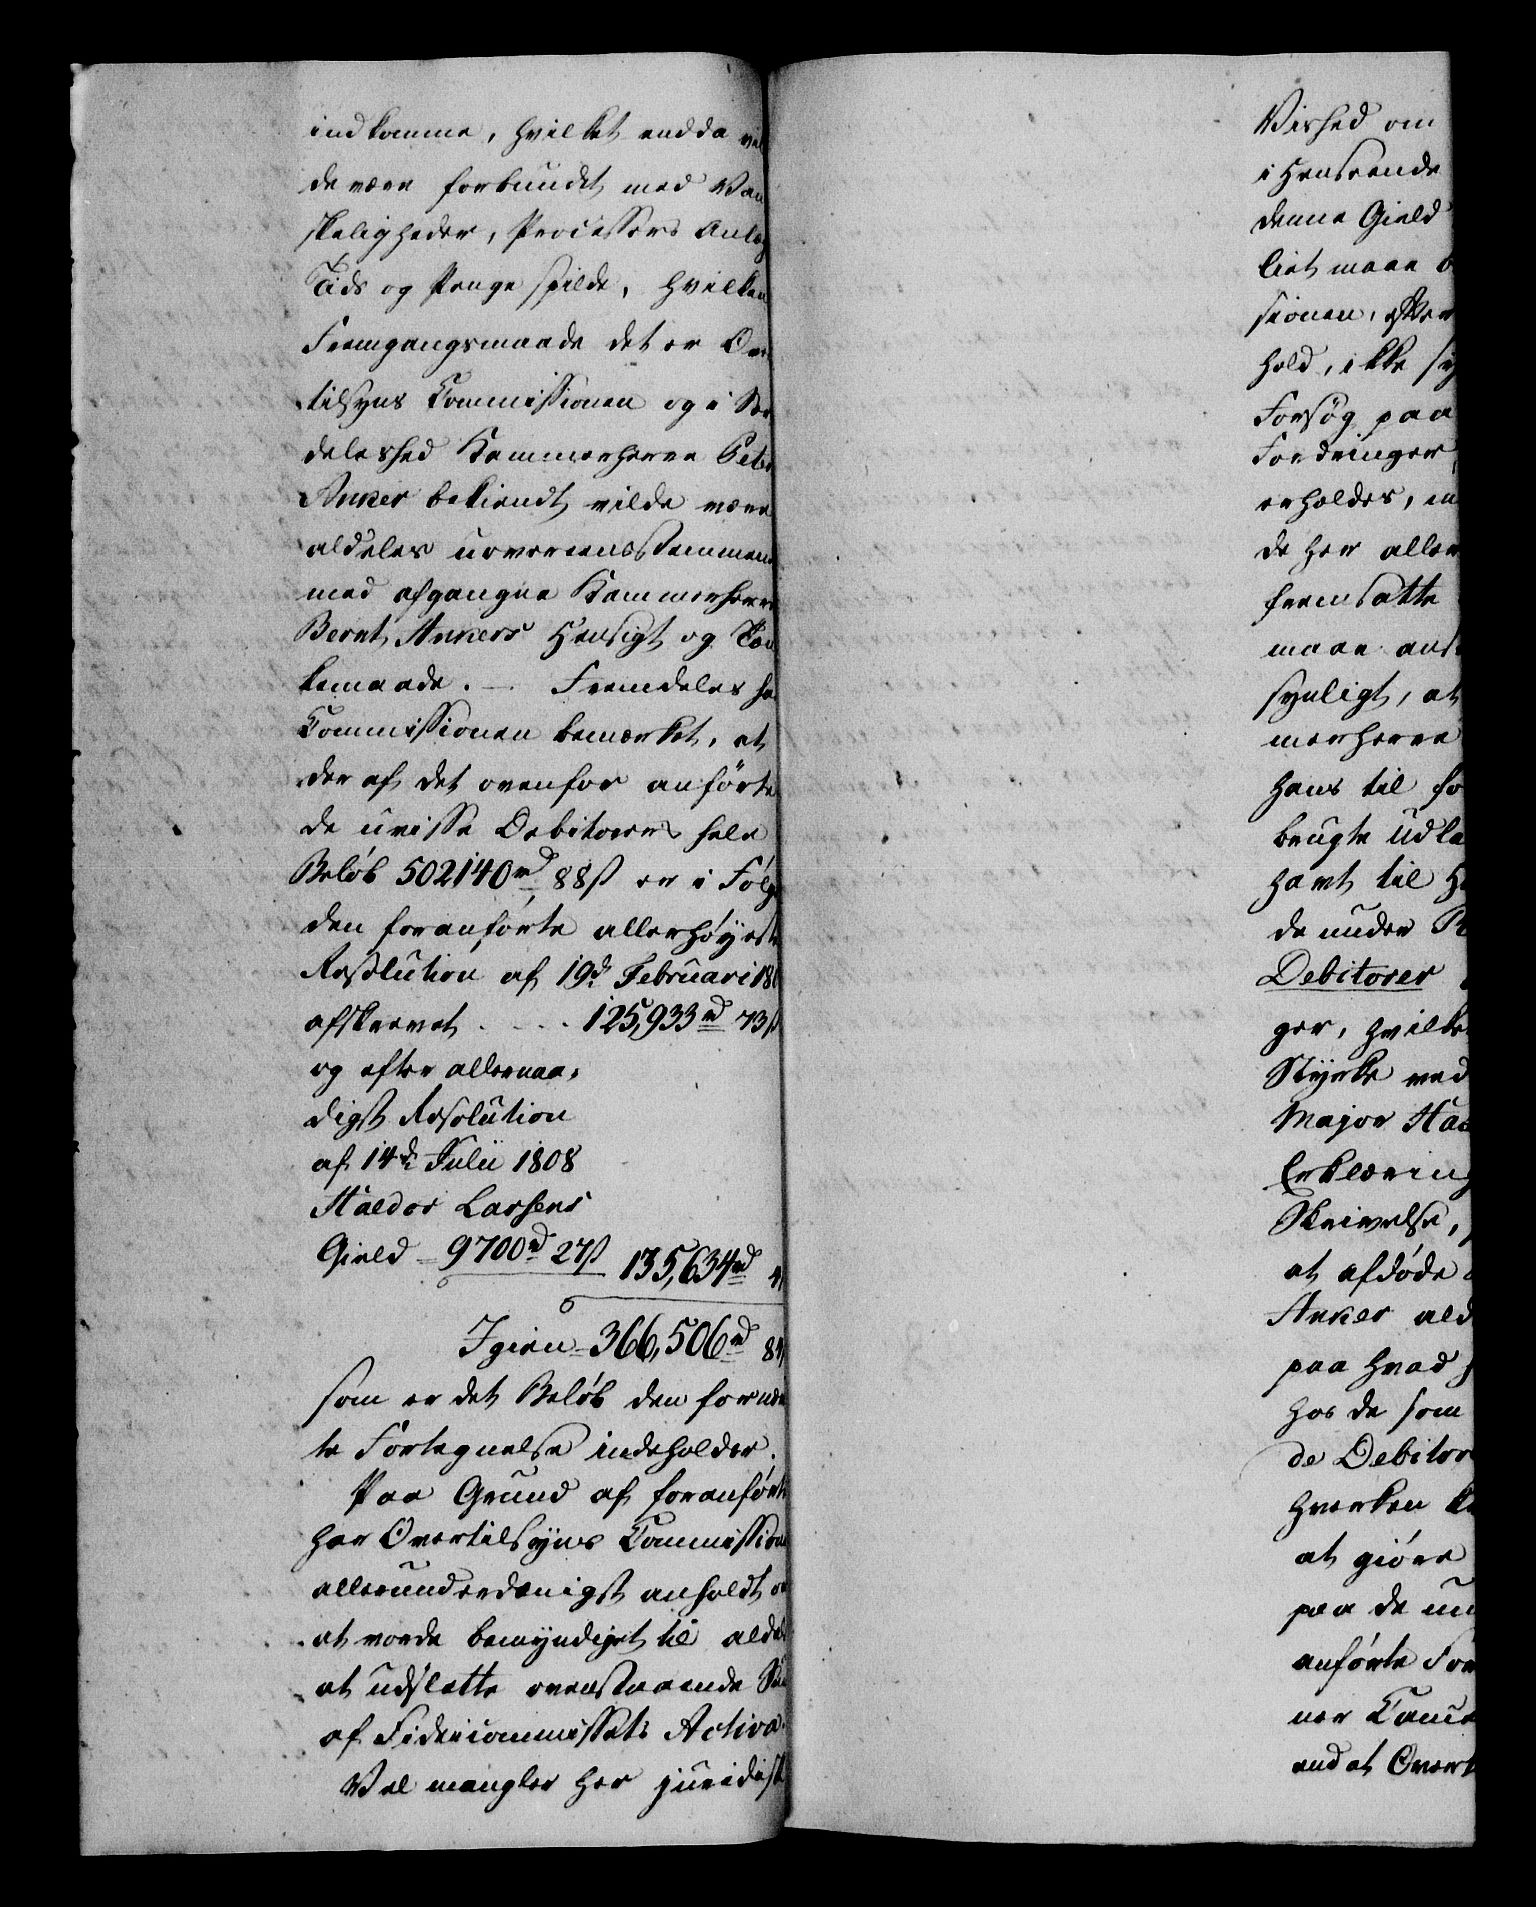 indkomme, hvilket endda vil
de være forbundet med Van
skeligheder, Processers Anlæg
Tids og Penge spilde, hvilken
Fremgangsmaade det er Over
tilsyns Commissionen og i Sær
deleshed Kammerherre Peter
Anker bekiendt vilde være
aldeles uoverensstemmende
med afgangne Kammerherre
Bernt Ankers Hensigt og Tæn
kemaade. — Fremdeles ha
Commissionen bemærket, at
der af det ovenfor anførte
de uvisse Debitorers hele
Beløb 502140 rd 88 ß er i Følge
den foranførte allerhøyeste
Resolution af 19d. Februari 18
afskrevet . - - . 125,933 rd 73 ß
og efter allernaa,
digst Resolution
af 14d. Julii 1808
Haldor Larsens
Gield - 9700 rd 27 ß 135,634 rd 4
Igien - 366,506 rd 84
som er det Beløb den fornæv
te Fortegnelse indeholder.
Paa Grund af foranførte
har Overtilsyns Commission
allerunderdanigst anholdt om
at vorde bemyndiget til alde
at udslette ovenstaaende Su
af Fideicommissets Activa.
Vel mangler her juridisk
Vished om
i Henseende
denne Gield
liet maae b
sionen, efter
hold, ikke sy
Forsøg paa
Fordringer
erholdes, m
de her aller
fremsatte
maae anse
synligt, at
merherre
hans til fo
brugte Udla
havt til H
de under N
Debitorer
ger, hvilke
Styrke ved
Major Haa
Erklæring
Skrivelse,
at afdøde
Anker ald
paa hvad h
hos de som
de Debitor
hverken k
at giøre
paa de un
anførte For
ner Cance
end at Overt